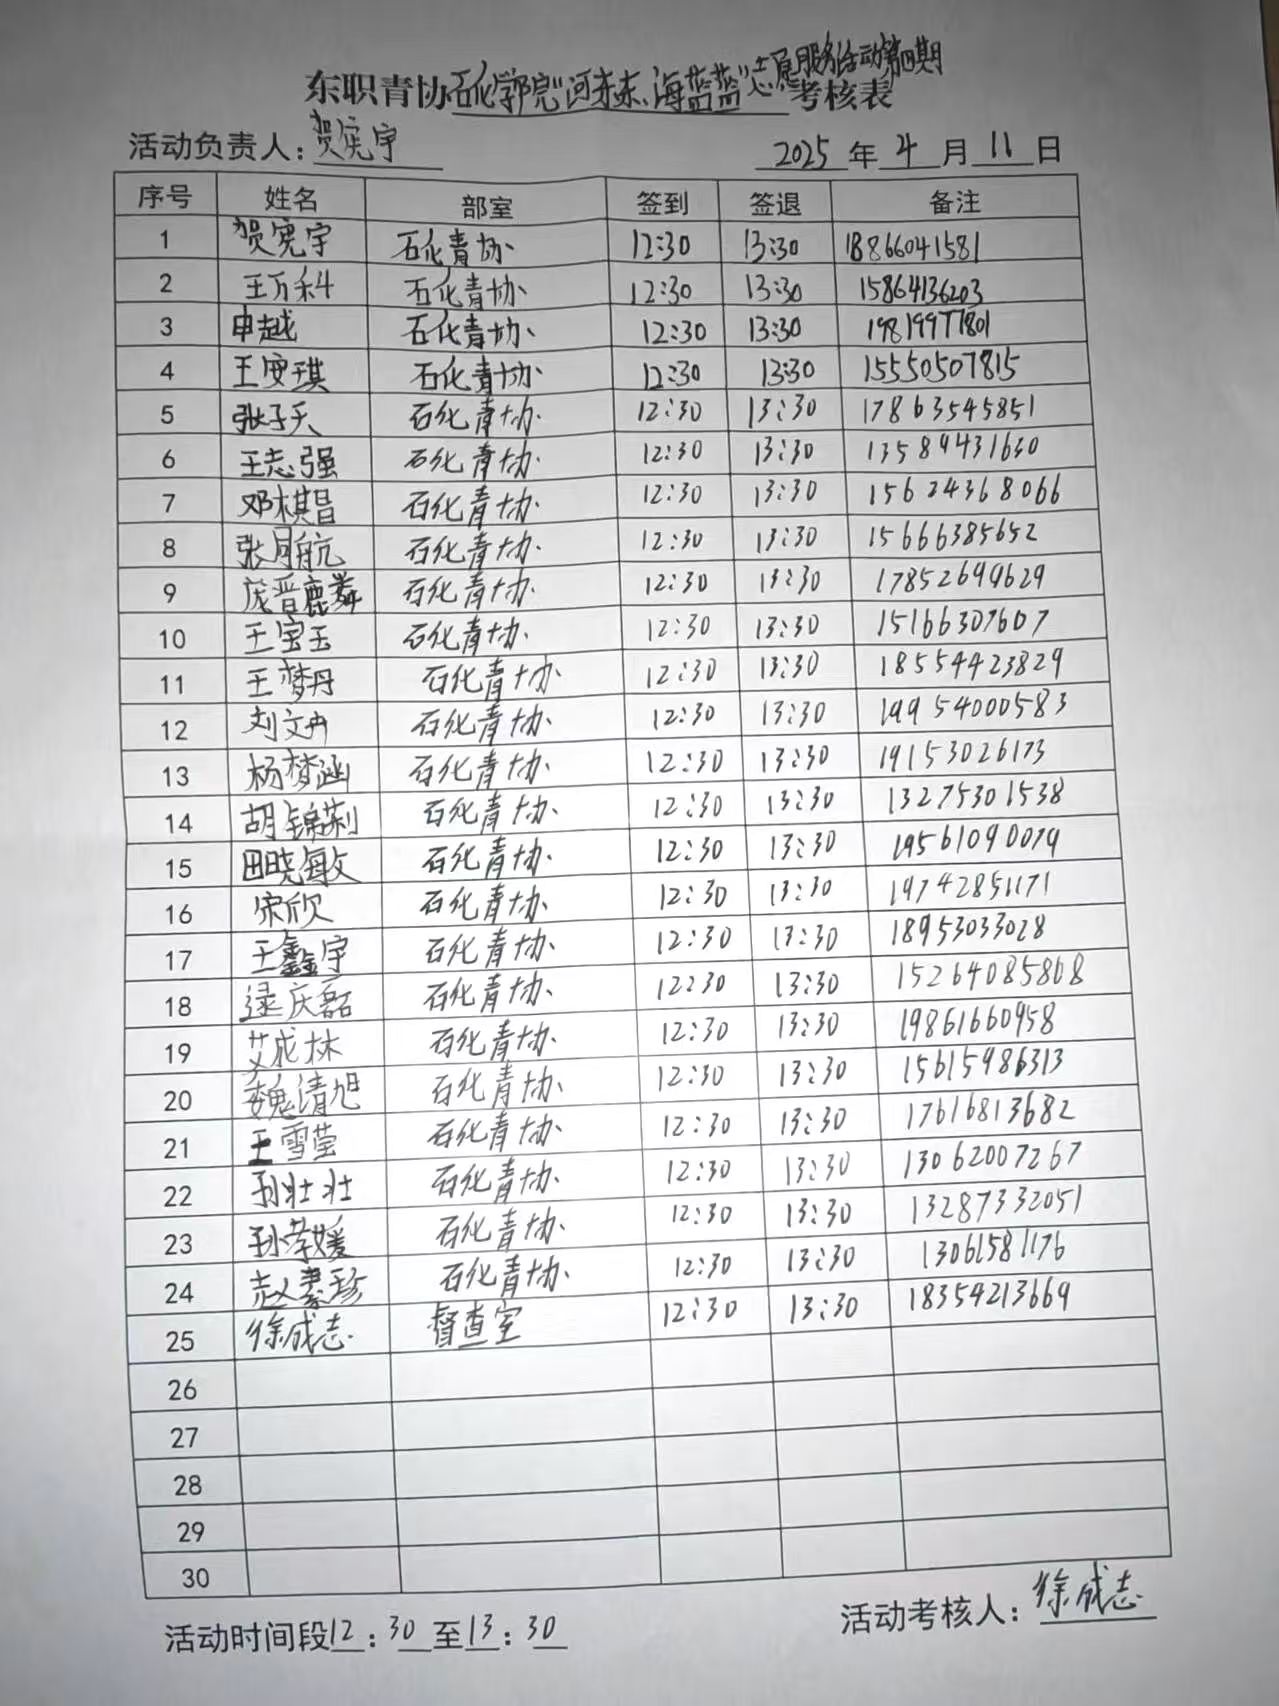 东职青协石化学院"河东东、海蓝蓝"志愿服务活动第四期考核表
活动负责人：贺宪宇 2025年4月11日
序号 姓名 部室 签到 签退 备注
1 贺宪宇 石化青协 12:30 13:30 18866041581
2 王万科 石化青协 12:30 13:30 15864136203
3 申越 石化青协 12:30 13:30 19819977801
4 王安琪 石化青协 12:30 13:30 15550507815
5 张子天 石化青协 12:30 13:30 17863545851
6 王志强 石化青协 12:30 13:30 13589431630
7 邓棋昌 石化青协 12:30 13:30 15624368066
8 张月航 石化青协 12:30 13:30 15666385652
9 庞晋麟 石化青协 12:30 13:30 17852699629
10 王宝玉 石化青协 12:30 13:30 15166307607
11 王梦丹 石化青协 12:30 13:30 18554423829
12 刘文冉 石化青协 12:30 13:30 19954000583
13 杨梦涵 石化青协 12:30 13:30 19153026173
14 胡锦莉 石化青协 12:30 13:30 13275301538
15 田晓敏 石化青协 12:30 13:30 19561090079
16 宋欣 石化青协 12:30 13:30 19742851171
17 王鑫宇 石化青协 12:30 13:30 18953033028
18 逯庆磊 石化青协 12:30 13:30 15264085808
19 艾成林 石化青协 12:30 13:30 19861660958
20 魏清旭 石化青协 12:30 13:30 15615986313
21 王雪莹 石化青协 12:30 13:30 17616813682
22 孙壮壮 石化青协 12:30 13:30 13062007267
23 孙孝媛 石化青协 12:30 13:30 13287332051
24 赵素珍 石化青协 12:30 13:30 13061581176
25 徐成志 督查室 12:30 13:30 18354213669
26
27
28
29
30
活动时间段12：30至13：30 活动考核人：徐成志